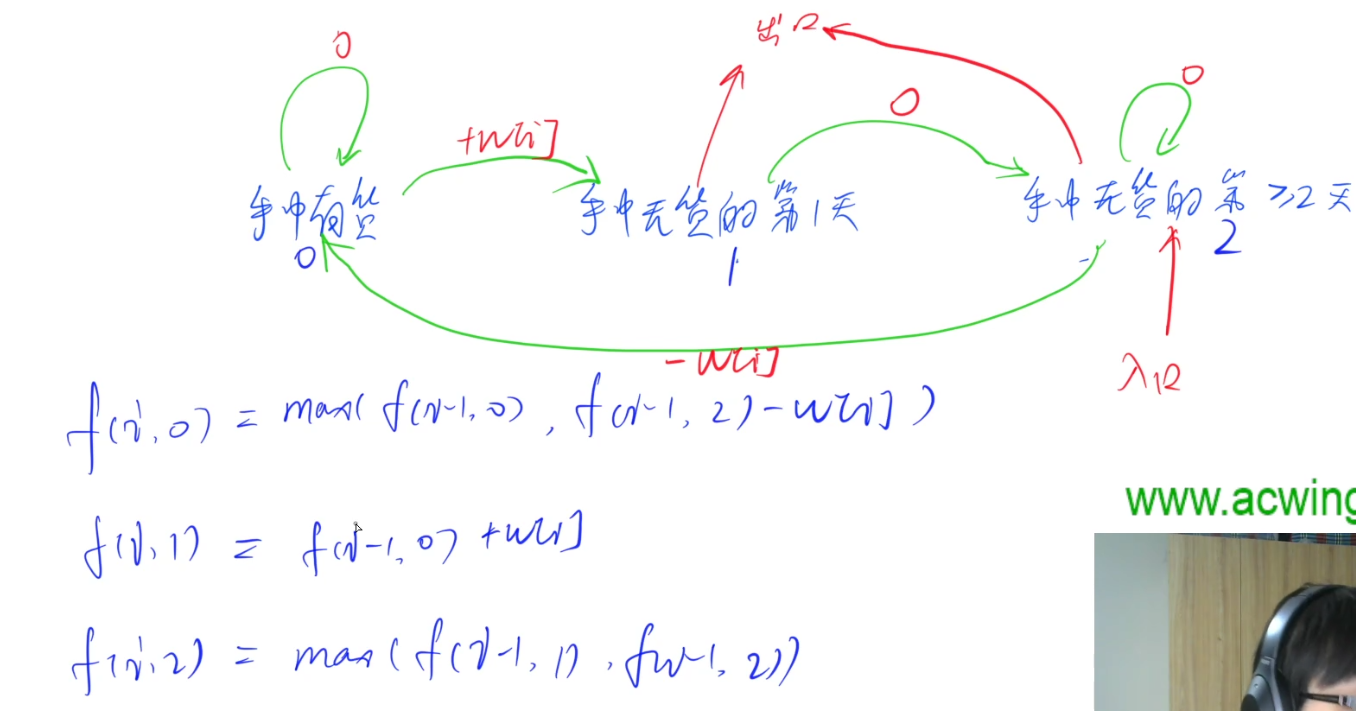 出口
0
0
0
+w[i]
手中有货
手中无货的第1天
手中无货的第≥2天
0
1
2
-w[i]
入口
f(i,0) = max(f(i-1,0), f(i-1,2)-w[i])
f(i,1) = f(i-1,0)+w[i]
f(i,2) = max(f(i-1,1), f(i-1,2))
www.acwing